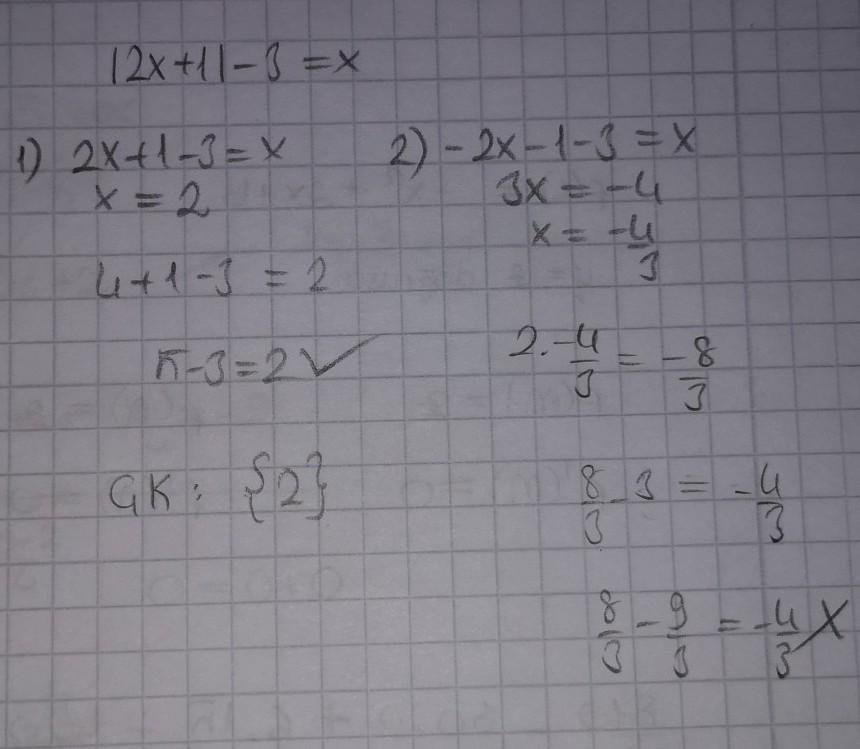 |2x+1|-3 = x
1) 2x+1-3 = x
x = 2
4+1-3 = 2
5-3=2 ✓
ÇK: {2}
2) -2x-1-3 = x
3x = -4
x = -4/3
2.-4/3 = -8/3
8/3 - 3 = -4/3
8/3 - 9/3 = -4/3 X